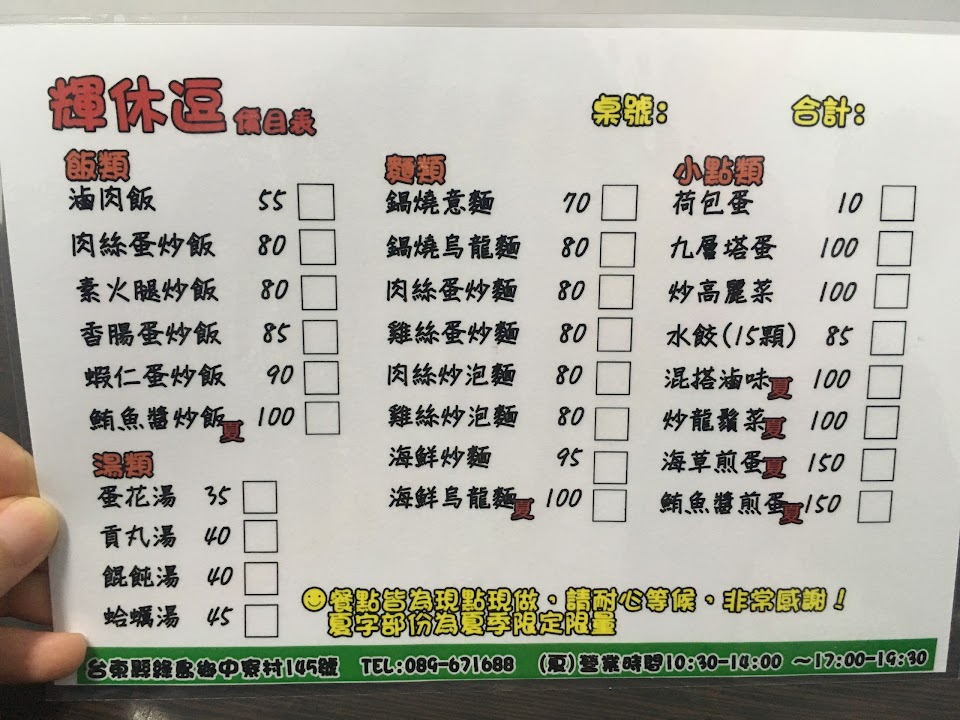 輝休逗 價目表
桌號:
合計:
飯類
滷肉飯 55
肉絲蛋炒飯 80
素火腿炒飯 80
香腸蛋炒飯 85
蝦仁蛋炒飯 90
鮪魚醬炒飯夏 100
湯類
蛋花湯 35
貢丸湯 40
餛飩湯 40
蛤蠣湯 45
麵類
鍋燒意麵 70
鍋燒烏龍麵 80
肉絲蛋炒麵 80
雞絲蛋炒麵 80
肉絲炒泡麵 80
雞絲炒泡麵 80
海鮮炒麵 95
海鮮烏龍麵夏 100
小點類
荷包蛋 10
九層塔蛋 100
炒高麗菜 100
水餃(15顆) 85
混搭滷味夏 100
炒龍鬚菜夏 100
海草煎蛋夏 150
鮪魚醬煎蛋夏 150
餐點皆為現點現做，請耐心等候，非常感謝！
夏字部份為夏季限定限量
台東縣綠島鄉中寮村145號 TEL:089-671688 (夏)營業時間10:30-14:00 ～17:00-19:30